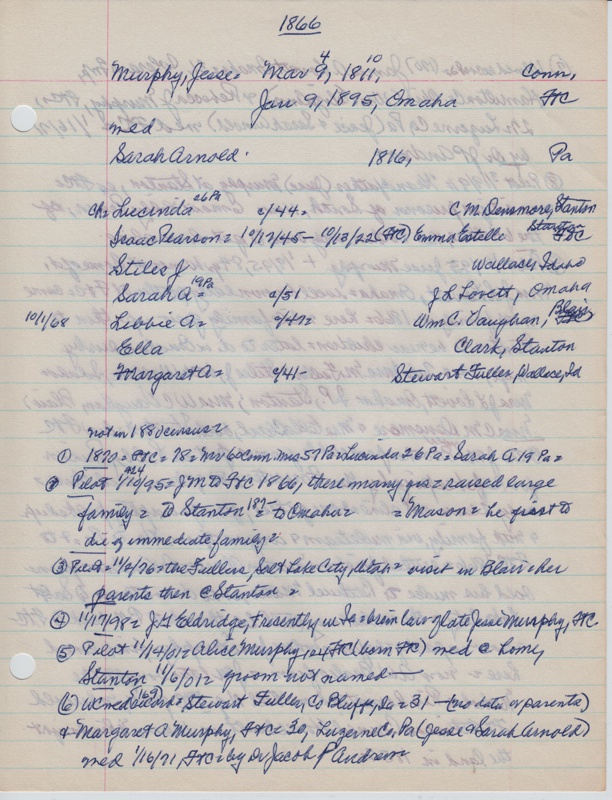 1866
Murphy, Jesse = Mar 9, 4 1811, 10 Conn,
Jan 9, 1895, Omaha FtC
med
Sarah Arnold 1816, Pa
ch = Lucinda 26 Pa c/44 = C M Densmore, Stanton
Isaac Pearson = 10/17/45 - 10/13/22 (FtC) Emma Estelle Stanton FtC
Stiles J Wallace, Idaho
Sarah A = 19 Pa c/51 J L Lovett, Omaha
10/1/68 Libbie A = c/47 = Wm C. Vaughan, Blair FtC
Ella Clark, Stanton
Margaret A = c/41 - Stewart Fuller, Wallace, Id
not in 1880 census =
① 1870 = FtC = 78 = Mr 60 Conn, Mrs 57 Pa = Lucinda 26 Pa = Sarah A 19 Pa =
② Pilot 1/10/95 = J M to FtC 1866, there many yrs = raised large
family = to Stanton 187- = to Omaha = = "Mason" = he first to
die of immediate family =
③ Pilot = 11/2/76 = the Fullers, Salt Lake City, Utah = visit in Blair = her
parents then @ Stanton =
④ 11/17/98 = J. H Eldridge, recently in Ia = bro in law of late Jesse Murphy, FtC
⑤ Pilot 11/14/01 = Alice Murphy, FtC (born FtC) med @ home,
Stanton 11/6/01 = groom not named
⑥ WC med record = (169) Stewart Fuller, Co Bluffs, Ia = 31 - (no data on parents)
& Margaret A Murphy, FtC = 30, Luzerne Co, Pa (Jesse & Sarah Arnold)
med 1/16/71, FtC = by Dr Jacob P Andrew